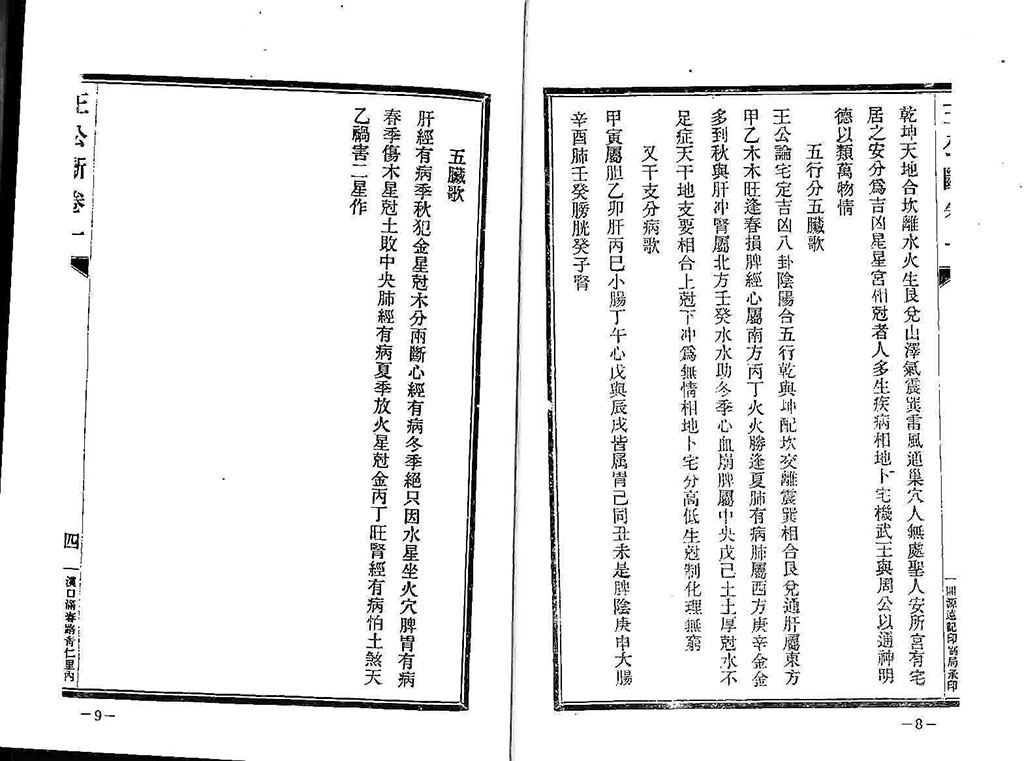 乾坤天地合坎離水火生艮兌山澤氣震巽雷風通巢穴人無處聖人安所宮有宅
居之安分爲吉凶星星宮相尅者人多生疾病相地卜宅機武王與周公以通神明
德以類萬物情
五行分五臟歌
王公論宅定吉凶八卦陰陽合五行乾與坤配坎交離震巽相合艮兌通肝屬東方
甲乙木木旺逢春損脾經心屬南方丙丁火火勝逢夏肺有病肺屬西方庚辛金金
多到秋與肝冲腎屬北方壬癸水水助冬季心血崩脾屬中央戊己土土厚尅水不
足症天干地支要相合上尅下冲爲無情相地卜宅分高低生尅制化理無窮
又干支分病歌
甲寅屬胆乙卯肝丙巳小腸丁午心戊與辰戌皆属胃己同丑未是脾陰庚申大腸
辛酉肺壬癸膀胱癸子腎
一開源遠記印書局承印
—8—
五臟歌
肝經有病季秋犯金星尅木分兩斷心經有病冬季絕只因水星坐火穴脾胃有病
春季傷木星尅土敗中央肺經有病夏季放火星尅金丙丁旺腎經有病怕土煞天
乙禍害二星作
王公斷卷一
四
漢口滿春路青仁里內
—9—